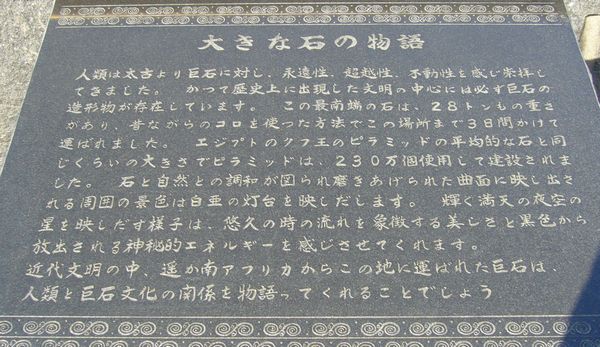 大きな石の物語
人類は太古より巨石に対し、永遠性、超越性、不動性を感じ崇拝し
てきました。 かつて歴史上に出現した文明の中心には必ず巨石の
造形物が存在しています。 この最南端の石は、28トンもの重さ
があり、昔ながらのコロを使った方法でこの場所まで3日間かけて
運ばれました。 エジプトのクフ王のピラミッドの平均的な石と同
じくらいの大きさでピラミッドは、230万個使用して建設されま
した。 石と自然との調和が図られ磨きあげられた曲面に映し出さ
れる周囲の景色は白亜の灯台を映しだします。 輝く満天の夜空の
星を映しだす様子は、悠久の時の流れを象徴する美しさと黒色から
放出される神秘的エネルギーを感じさせてくれます。
近代文明の中、遥か南アフリカからこの地に運ばれた巨石は、
人類と巨石文化の関係を物語ってくれることでしょう